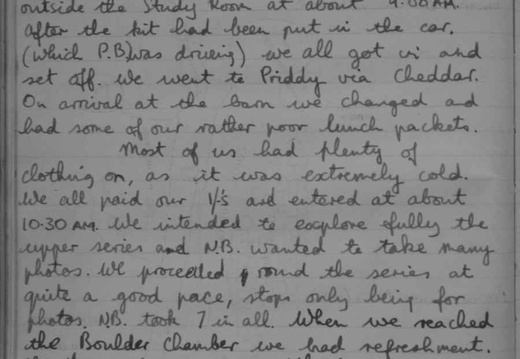 outside the Study Room at about 9.00 AM.
after the kit had been put in the car.
(which P.B) was driving) we all got in and
set off. We went to Priddy via Cheddar.
On arrival at the barn we changed and
had some of our rather poor lunch packets.
Most of us had plenty of
clothing on, as it was extremely cold.
We all paid our 1/-s and entered at about
10.30 AM. We intended to explore fully the
upper series and N.B. wanted to take many
photos. We proceeded round the series at
quite a good pace, stops only being for
photos. N.B. took 7 in all. When we reached
the Boulder Chamber we had refreshment.